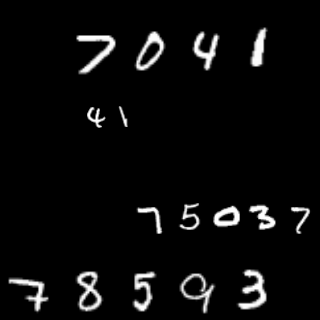 7041
41
75037
78593